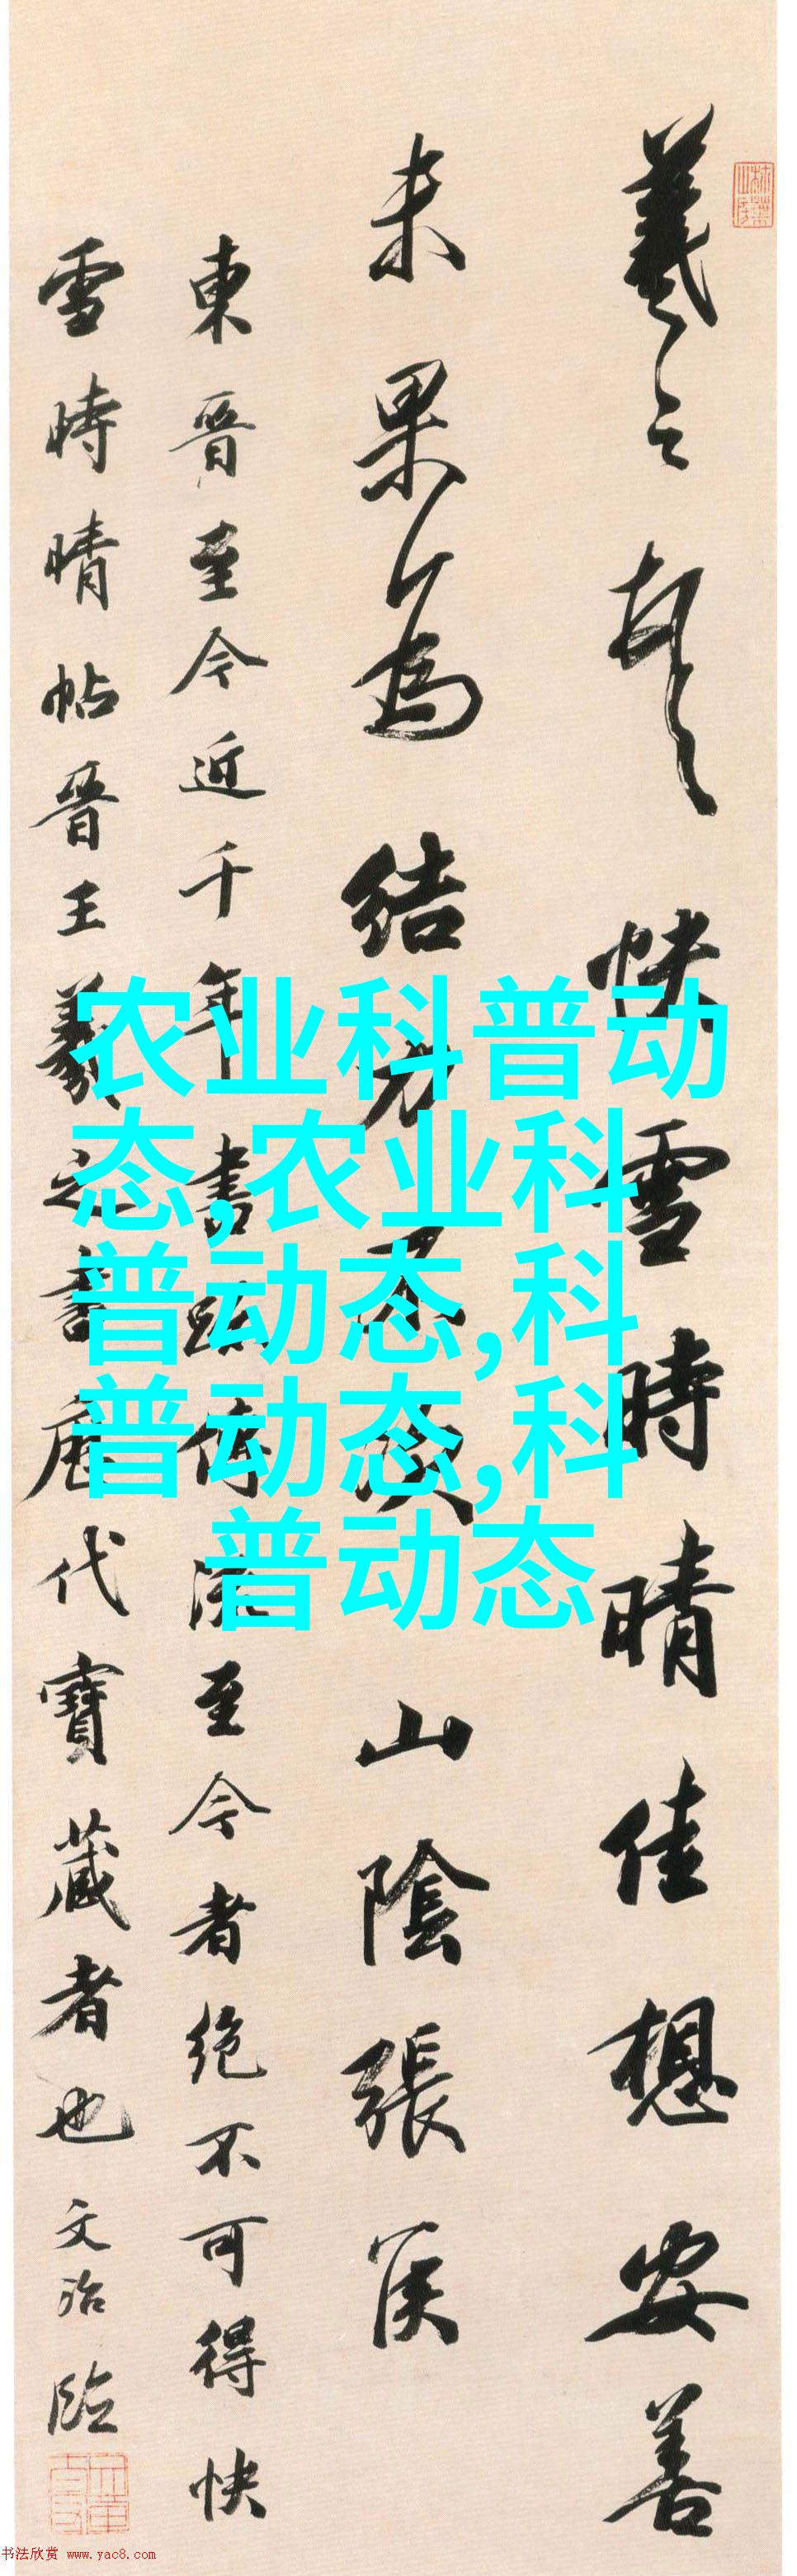 羲之頓首快雪時晴佳想安善
未果為結力不次山陰張侯
東晉至今近千年書跡傳流至今者絶不可得快
雪時晴帖晉王羲之書歷代寶藏者也文治臨
农业科普动
态,农业科
普动态,科
普动态,科
普动态
书法欣赏 www.yac8.com